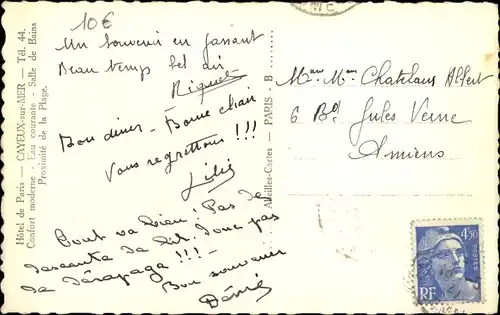 10€
Hôtel de Paris — CAYEUX-sur-MER — Tél. 44.
Confort moderne - Eau courante - Salle de Bains
Proximité de la Plage.
Un Souvenir en passant
Beau temps bel air
Riquet
Bon diner - Bonne chair
Vous regrettons !!!
Lili
Tout va bien ! Pas de
descente de lit. Donc pas
de dérapage !!! -
Bon souvenir
Dédé
Abeilles-Cartes — PARIS - B
Mme Mr Chatelans Albert
6 Bd Jules Verne
Amiens
4F50
POSTES
RF